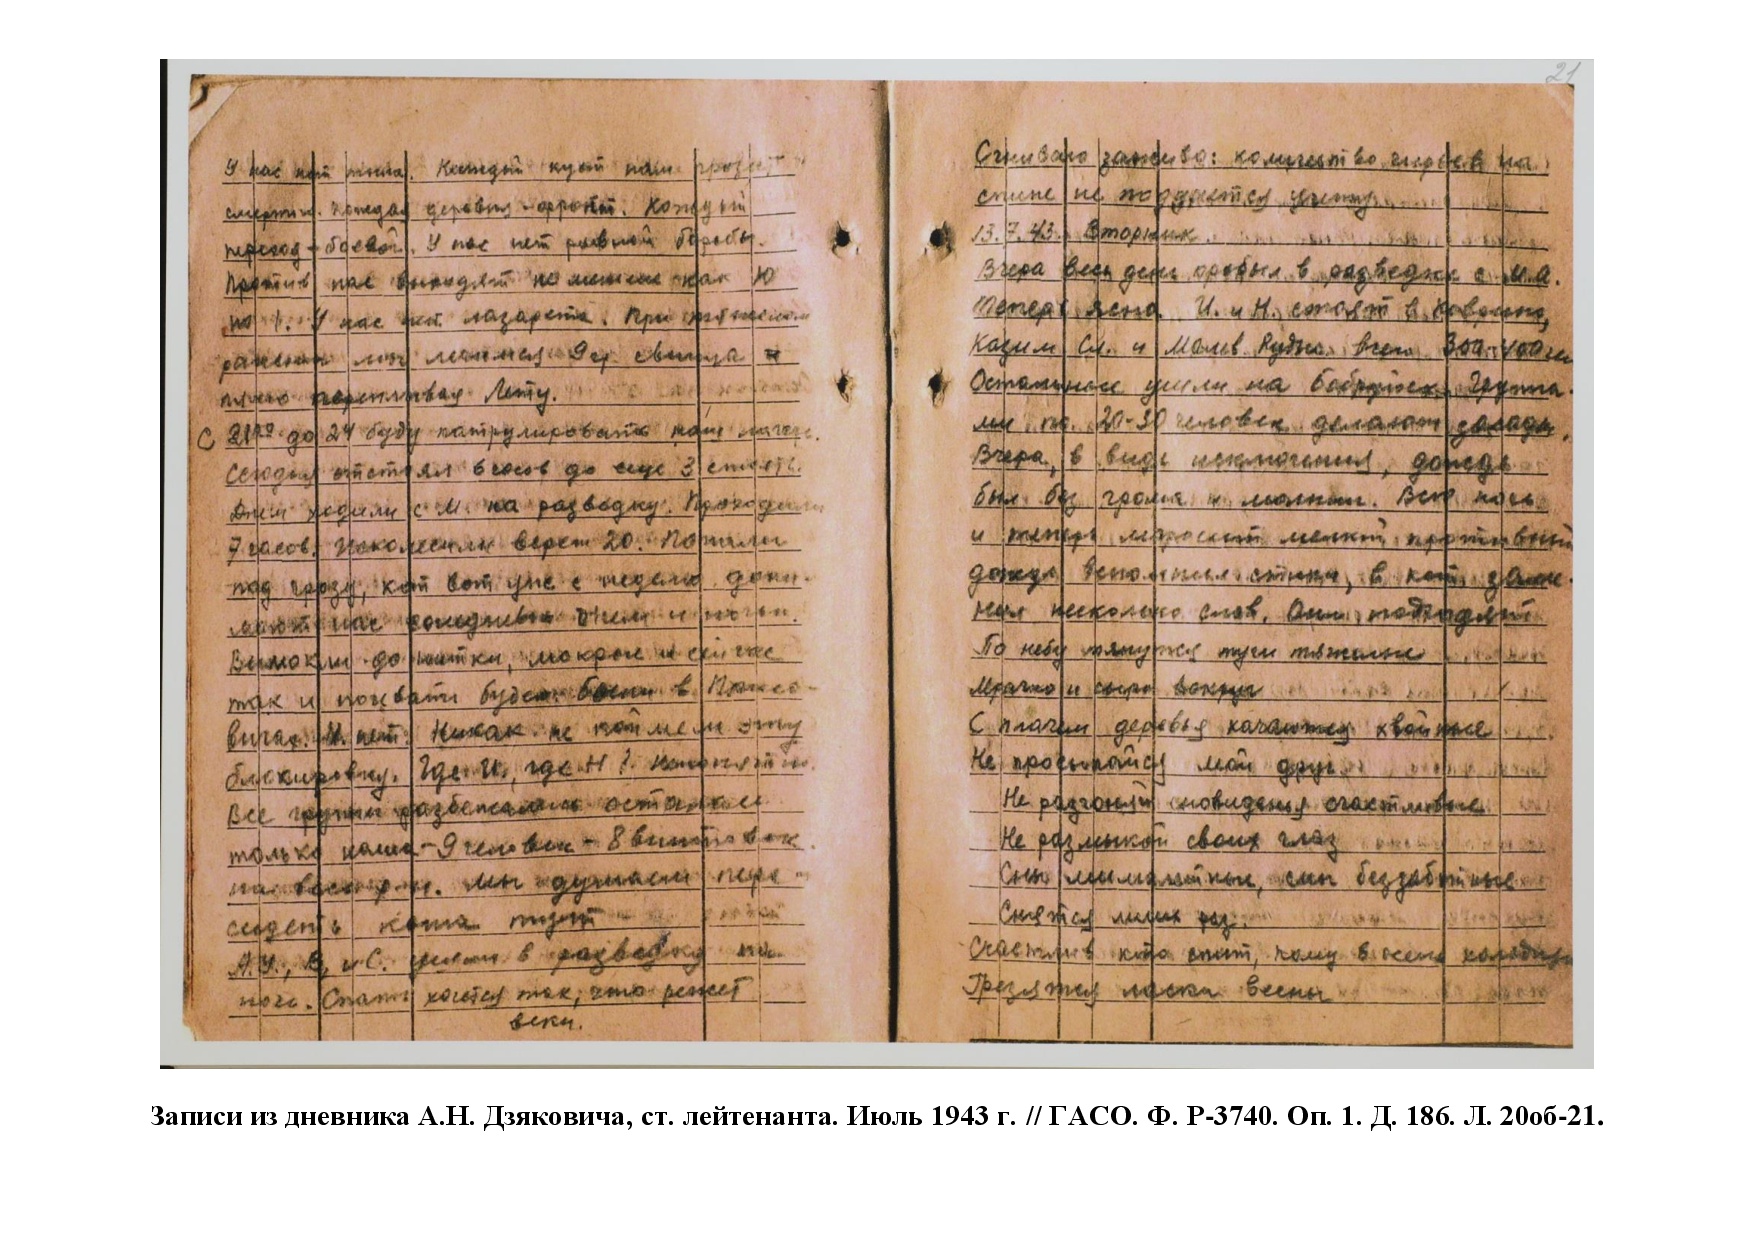 У нас нет тыла. Каждый куст нам грозит
смертью. Каждая деревня - фронт. Каждый
переход - боевой. У нас нет равной борьбы.
Против нас выходят не меньше как 10
на 1. У нас нет лазарета. При
ранении мы 9 гр. свинца и
переплывая Лету.
С 21⁰⁰ до 24 буду патрулировать наш лагерь.
Сегодня отстоял 6 часов да еще 3 стоять.
Днем ходили с М. на разведку. Проходили
7 часов. Исколесили верст 20. Попали
под грозу, кот вот уже с неделю дони-
мают нас ежедневно днем и ночью.
Вымокли до нитки, мокрые и сейчас
так и ночевать будем. Были в
И. нет. Никак не поймем эту
блокировку. Где И., где Н? Непонятно.
Все группы разбежались остались
только наша - 9 человек - 8 винтовок
на весь р-н. Мы думаем пере-
сидеть
А.У., В. и С. ушли в разведку на
ночь. Спать хочется так, что режет
веки.
21
Сгниваю заживо: количество чирьев на
спине не поддается учету.
13.7.43. Вторник
Вчера весь день пробыл в разведке с М.А.
Теперь ясно. И. и Н. стоят в Коврино,
Казим Сл. и Малев. Рудня. всего 300-400 чел
Остальные ушли на Бобруйск. Группа-
ми по 20-30 человек делают засады.
Вчера, в виде исключения, дождь
был без грома и молнии. Всю ночь
и теперь моросит мелкий противный
дождь. Вспомнил стихи, в кот. заме-
нил несколько слов. Они подходят
По небу тянутся тучи тяжелые
Мрачно и сыро вокруг
С плачем деревья качаются хвойные
Не просыпайся мой друг
Не разгоняй сновидения счастливые
Не размыкай своих глаз
Сны мимолетные, сны беззаботные
Снятся лишь раз.
Счастлив кто спит, кому в осень холодную
Грезятся ласки весны
Записи из дневника А.Н. Дзяковича, ст. лейтенанта. Июль 1943 г. // ГАСО. Ф. Р-3740. Оп. 1. Д. 186. Л. 20об-21.